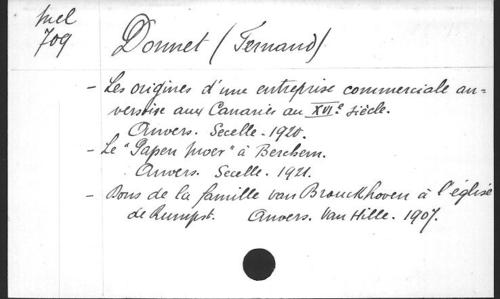 Mel
709
Donnet (Fernand)
- Les origines d'une entreprise commerciale an-
versoise aux Canaries au XVIe siècle.
Anvers. Secelle - 1920.
- Le "Papen Moer" à Berchem.
Anvers. Secelle. 1921.
- Dons de la famille van Bronckhoven à l'église
de Rumpst. Anvers. Van Hille. 1907.